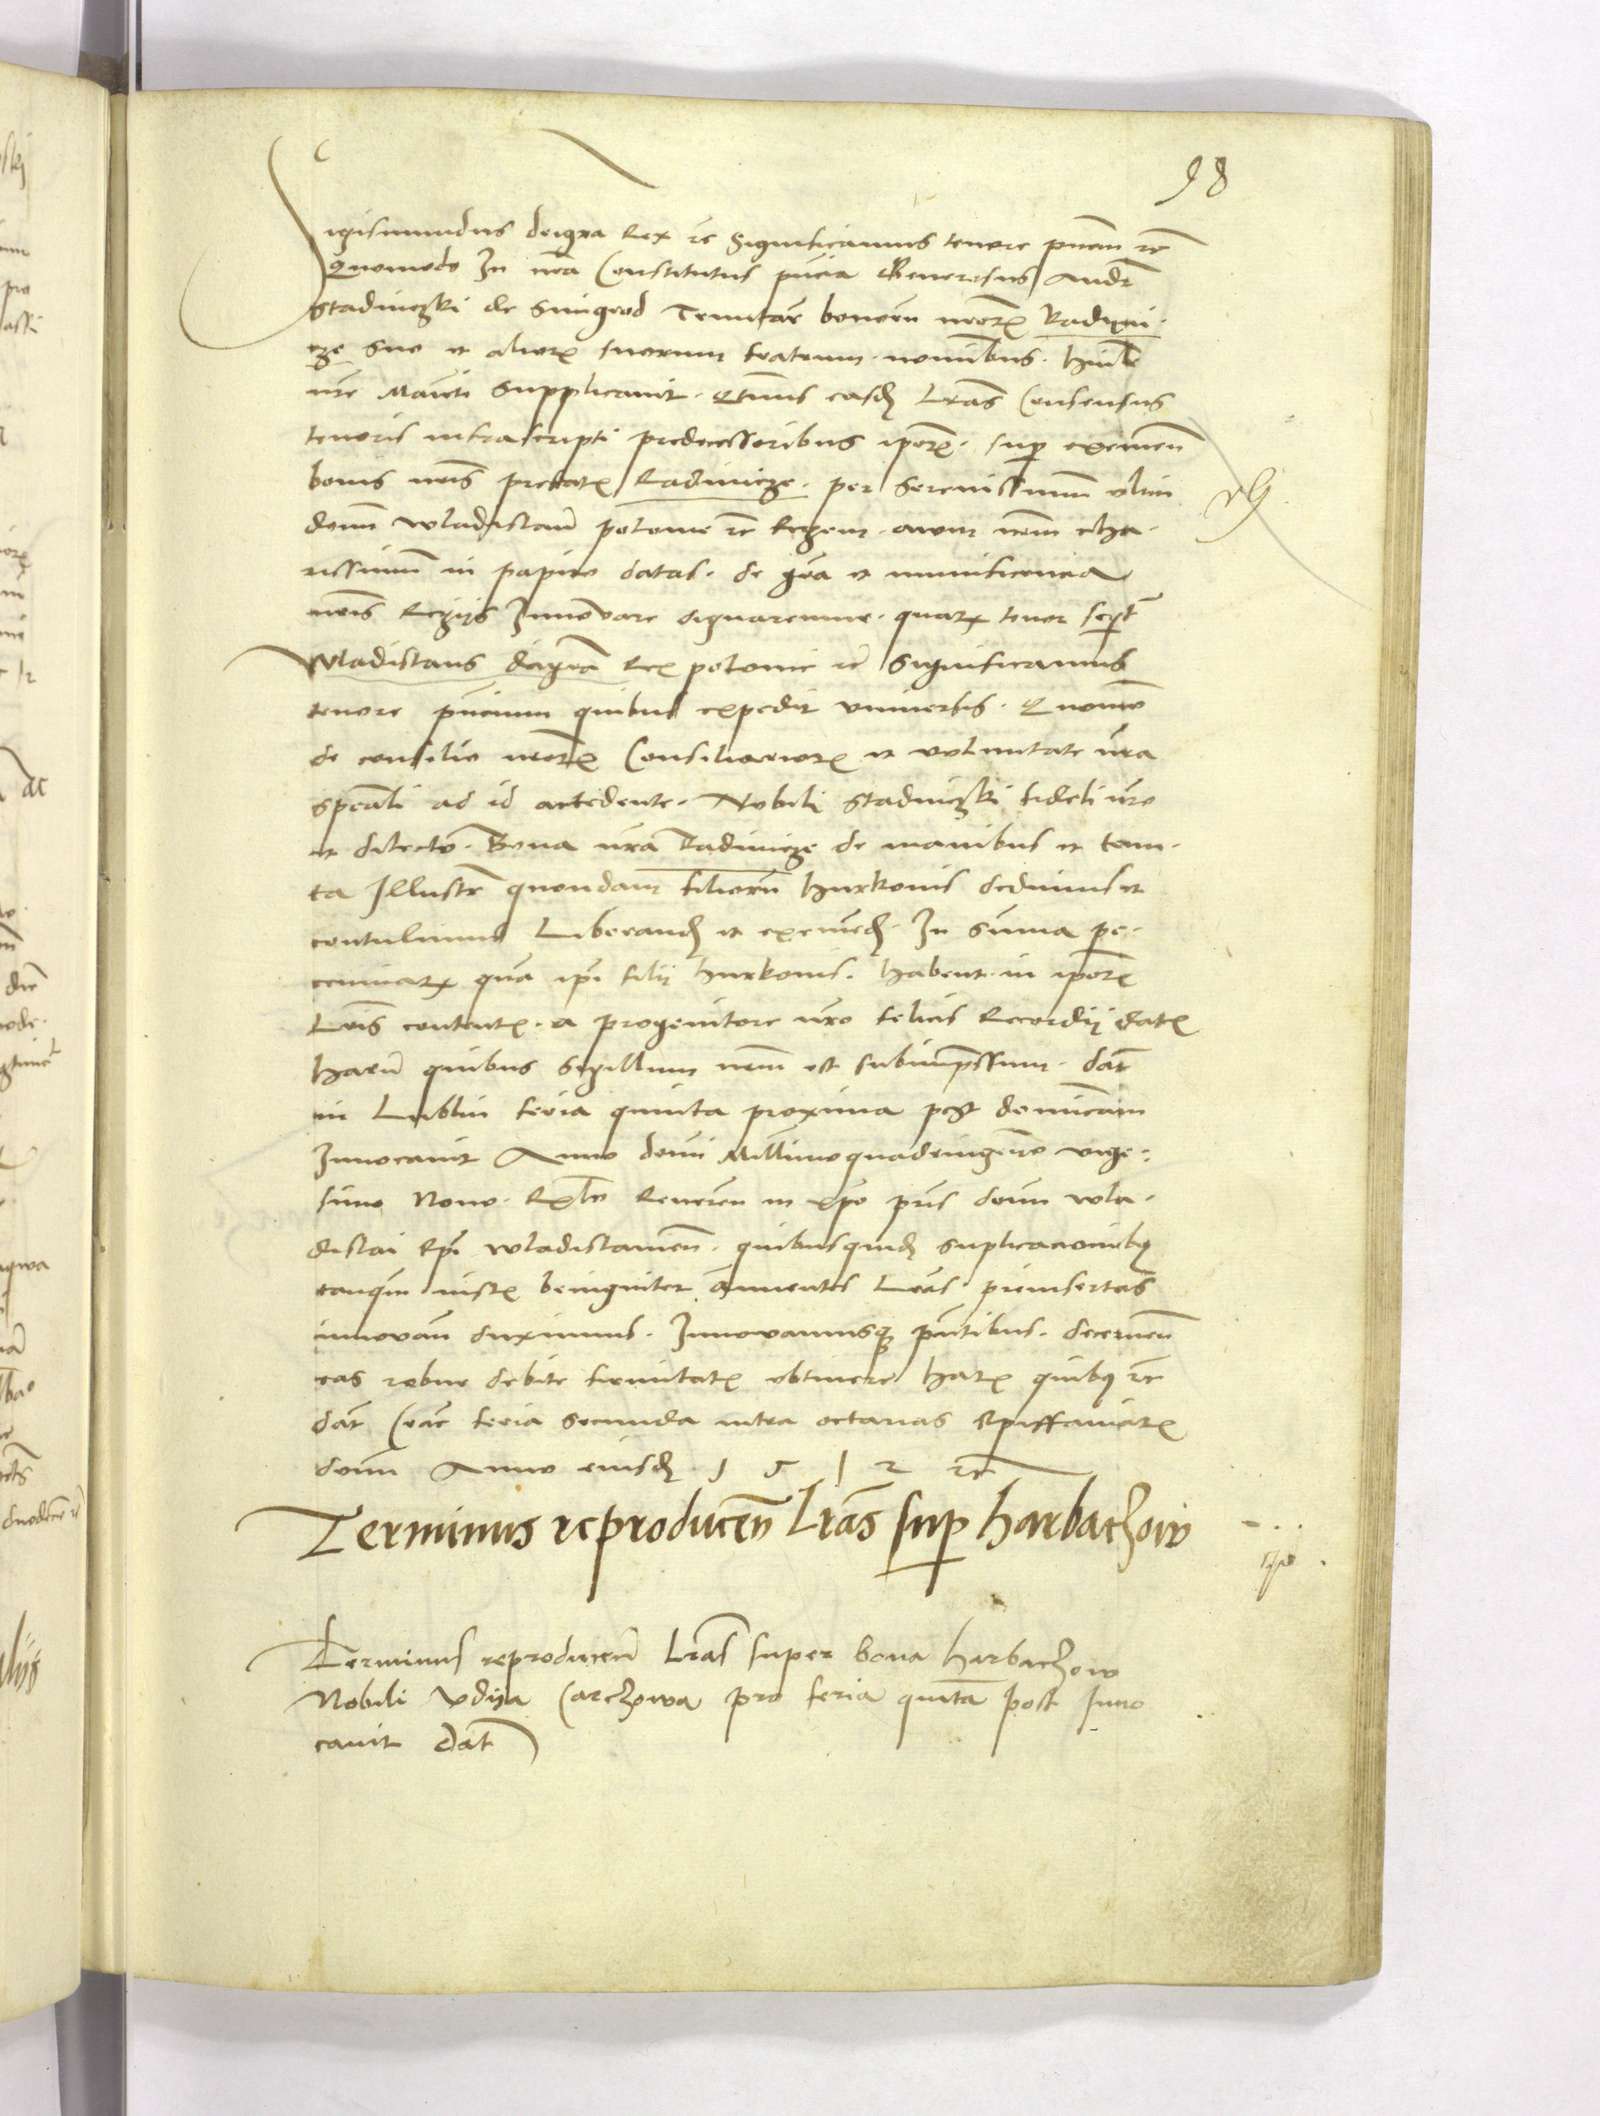 98
Sigismundus deigra Rex rc Significamus tenore pntm rc
Quomodo In nra Constitutus pncia Generosus Andr
Stadniczki de Smigrod Tenutar bonorum nrorum Radymi-
cze suo et aliorum suorum fratrum nominibus. humlr
nre Maiesti Supplicavit. Qtnus easdem Lras Consensus
tenoris infrascripti predecessoribus iporum. sup exemen
bonis nris predictis Radimicze. per Serenissimum olim
domn Wladislaum polonie rc Regem. avum nrm cha-
rissimum in papiro datas. de gra et munificencia
nris Regiis Innovare dignaremur. quarum tenor seqt
Wladislaus deigra Rex polonie rc Significamus
tenore pncium quibus expedit universis. Quomo
de consilio nrorum Consiliariorum et voluntate nra
speali ad id accedente. Nobili Stadniczki fideli nro
et dilecto. Bona nra Radimicze de manibus et tenu-
ta Illustr quondam filiorum hurkonis dedimus et
contulimus Liberand et exemend. In summa pe-
cuniarum qua ipi filii hurkonis. habent in iporum
Lris contentis. a progenitore nro felicis Recordii datis
harum quibus Sigillum nrm est subimpressum. dat
in Lublin feria quinta proxima post dominicam
Invocavit Anno domi Millimoquadringento vige-
simo Nono. Relo Reveren in xpo pris domi Wla-
dislai Epi Wladislavien. quibusquidem suplicacionibus
tanquam iustis benigniter annuentes Lras preinsertas
innovan duximus. Innovamusque pntibus. decernen
eas robur debite firmitatis obtinere harum quibus rc
dat Crac feria secunda intra octavas Epiffaniarum
domi Anno eiusdem 1 5 1 2 rc
Terminus reproducen Lras sup harbaczow
Terminus reproducen Lras super bona harbaczow
Nobili Vdija Carczowa pro feria quinta post Invo
cavit Dat